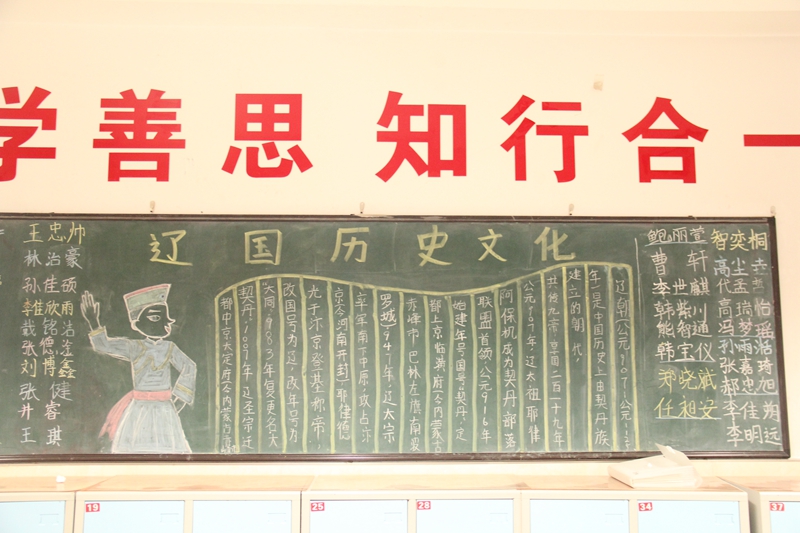 学善思 知行合一
辽国历史文化
辽朝(公元907—公元1125
年)是中国历史上由契丹族
建立的朝代,
共传九帝,享国二百一十九年
公元907年辽太祖耶律
阿保机成为契丹部落
联盟首领公元916年
始建年号国号"契丹",定
都上京临潢府(今内蒙古
赤峰市巴林左旗南波
罗城)947年,辽太宗
率军南下中原,攻占汴
京(今河南开封)耶律德
光于汴京登基称帝,
改国号为辽,改年号为
"大同"983年复更名大
契丹,1007年辽圣宗迁
都中京大定府(今内蒙
王忠帅
林治豪
孙佳硕
张德
刘博鑫
张健
井睿
王琪
鲍丽萱
智奕桐
曹轩
李世麒
韩紫川
熊智通
韩宝仪
郑晓斌
任昶安
19
25
28
34
37